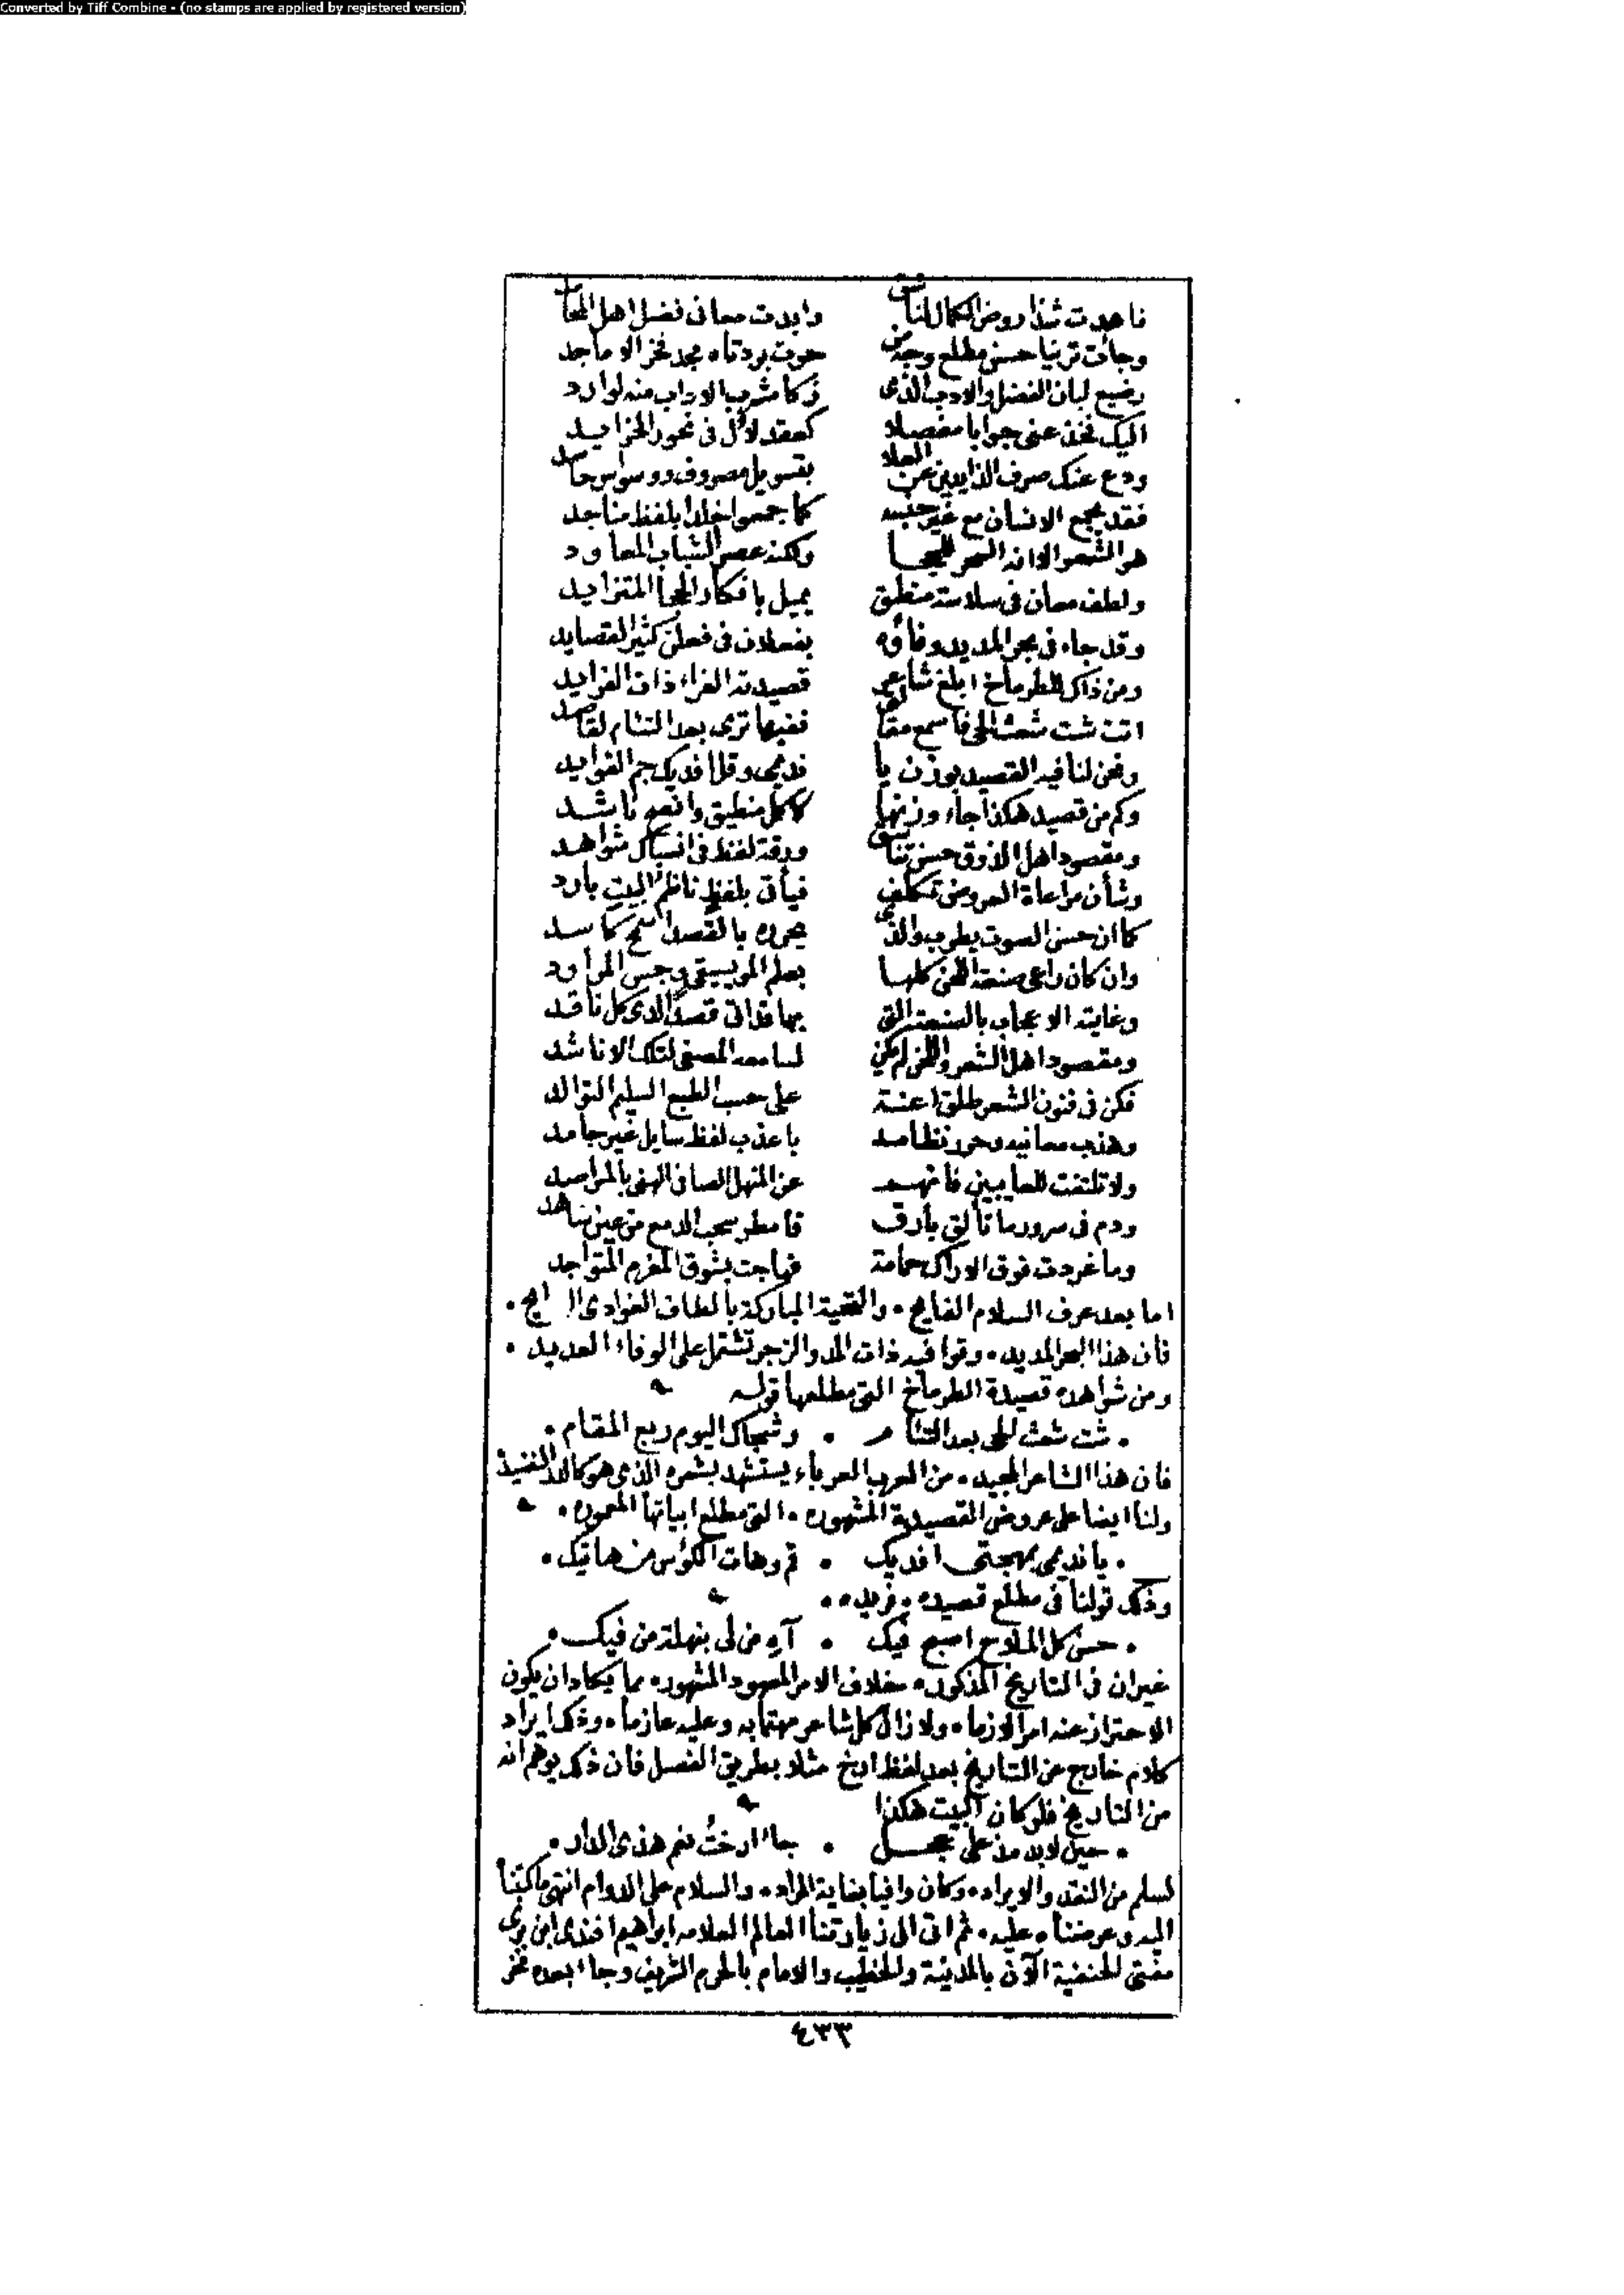 Converted by Tiff Combine - (no stamps are applied by registered version)
فاهدت شذا روض الكمال لناشق وابدت معانى فضل اهل المعاهد
وجاءت ترينا حسن مطلع وجه من حوت بردتاه مجد فخر الاماجد
رضيع لبان الفضل والادب الذى زكا مشرب الاداب منه لوارد
اليك فخذ عنى جوابا مفصلا كعقد لآل فى نحور الخرايد
ودع عنك صرف الذايدين عن العلا بتسويل مصروف ووسواس حاسد
فقد يجمع الانسان مع غير جنسه كما جمعوا خلدا بلفظ مناجد
هو الشعر الا انه السحر للحجا ولكنه عصر الشباب المعاود
ولطف معان فى سلاسة منطق يميل بافكار الحجا المتزايد
وقد جاء فى بحر المديد وفاؤه بفعلان فى فعلن كثير القصايد
ومن ذاك للطرماخ ابلغ شاعر قصيدته الغراء ذات الفرايد
اتت شت شعث الحى فاسمع مقالها ففيها ترى بعد التئام لقاصد
ونحن لنا فيه القصيد بوزن يا نديمى وقل افديك جم الفوايد
وكم من قصيد هكذا جاء وزنها لاكمل منطيق وافصح ناشد
ومقصود اهل الذوق حسن تناسق ورقة لفظ فى انسباك شواهد
وشأن مراعاة العروض تكلف فيأتى بلفظ ناظم البيت بارد
كما ان حسن الصوت يطرب والذى يحرره بالقصد اسمج كاسد
وان كان راعى صنعة اللحن كلها بعلم الموسيقى وجس المراود
وغايته الاعجاب بالصنعة التى بها قد اتى قصدا لدى كل ناقد
ومقصود اهل الشعر واللحن لم يكن لسامعه المصغى لتلك الاناشد
فكن فى فنون الشعر مطلق اعنة على حسب الطبع السليم التوالد
وهذب معانيه وحرر نظامه باعذب لفظ سايل غير جامد
ولا تلتفت للعايبين فانهم عن المنهل الصافى الهنى بالمراصد
ودم فى سرور ما تألق بارق فامطر سحب الدمع من عين شاهد
وما غردت فوق الاراك حمامة فهاجت بشوق المغرم المتواجد
اما بعد عرف السلام الفايح . والتحية المباركة بالطاف الغوادى
فان هذا البحر المديد . وقوافيه ذات المد والزجر تشتمل على الوفاء العديد .
ومن شواهده قصيدة الطرماخ التى مطلعها قوله
. شت شعث الحى بعد التئام . وشجاك اليوم ربع المقام .
فان هذا الشاعر المجيد . من العرب العرباء يستشهد بشعره الذى هو كالدر النضيد
ولنا ايضا على عروض القصيدة المشهوره . التى مطلع ابياتها المعموره .
. يا نديمى بمهجتى افديك . قم وهات الكؤس من هاتيك .
وذلك قولنا فى مطلع قصيده . فريده .
. حسن كل الملاح اصبح فيك . آه من لى بنهلة من فيك .
غير ان فى التاريخ المذكور . خلاف الامر المعهود المشهور . مما يكاد ان يكون
الاحتراز عنه امرا لازما . ولا زال كل شاعر مهتما به وعليه عازما . وذلك ايراد
كلام خارج عن التاريخ بعد لفظ ارخ مثلا بطريق الفصل فان ذلك يوهم انه
من التاريخ فلو كان البيت هكذا
. حين لابد منه على عجل . جاء ارختُ نعم هذى الدار .
لسلم من النقد والايراد . وكان وافيا بغاية المراد . والسلام على الدوام انتهى ما كتبناه
اليه وعرضناه عليه . ثم اتى الى زيارتنا العالم العلامه ابراهيم افندى ابن برى
مفتى الحنفية الآن بالمدينة والخطيب والامام بالحرم الشريف وجاء بعده فخر
٤٣٣